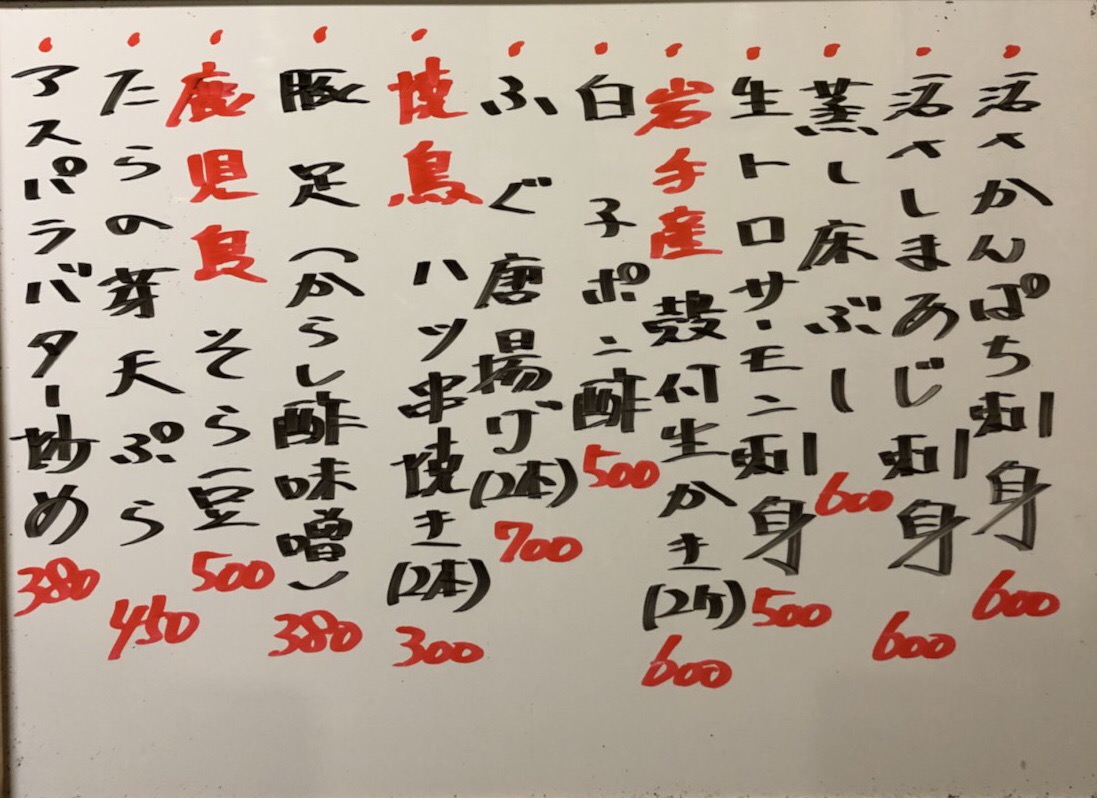 ・活さかんぱち刺身 600
・活さしまあじ刺身 600
・蒸し床ぶし 600
・生トロサーモン刺身 500
・岩手産 殻付生かき(2ケ) 600
・白子ポン酢 500
・ふぐ唐揚げ(2本) 700
・焼鳥 ハツ串焼き(2本) 300
・豚足(からし酢味噌) 380
・鹿児島 そら豆 500
・たらの芽天ぷら 450
・アスパラバター炒め 380